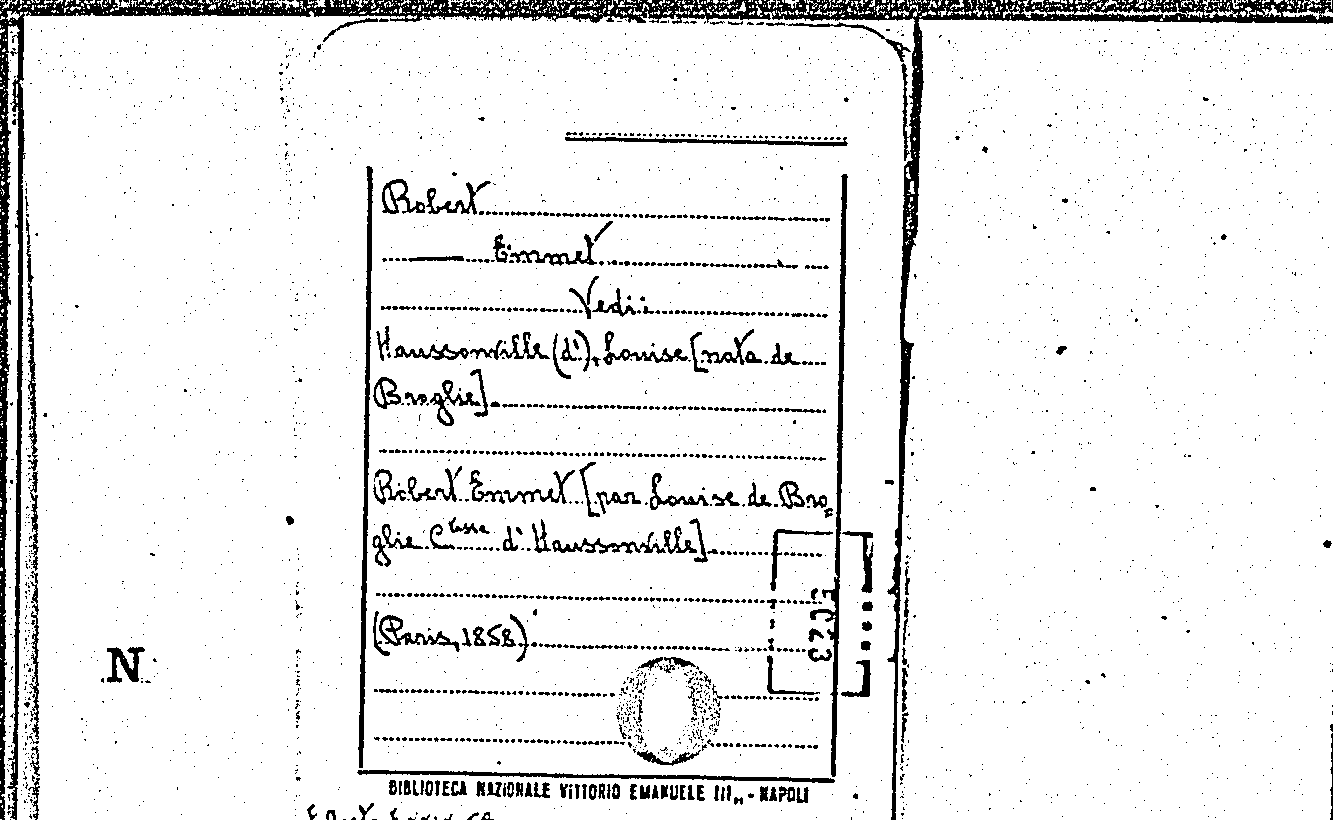 Robert
Emmet
Vedi:
Haussonville (d'), Louise [nata de
Broglie].
Robert Emmet [par Louise de Bro=
glie Ctesse d' Haussonville].
(Paris, 1858).
N
BIBLIOTECA NAZIONALE VITTORIO EMANUELE III„ - NAPOLI